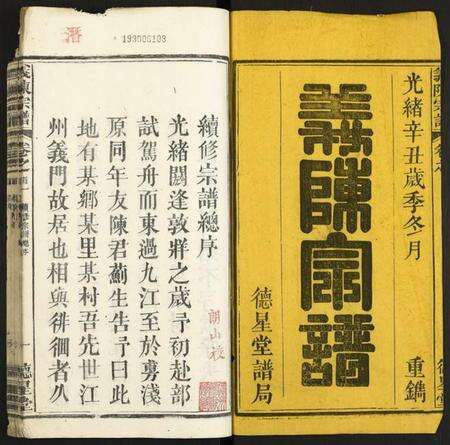 光緒辛丑歲季冬月
重鐫
義陳宗譜
德星堂譜局
續修宗譜總序
光緒閼逢敦牂之歲予初赴部
試駕舟而東過九江至於
原同年友陳君蘅生告予曰此
地有某鄉某里某村吾先世江
州義門故居也相與徘徊者久
潛
193006108
朗山校
義陳宗譜
德星堂